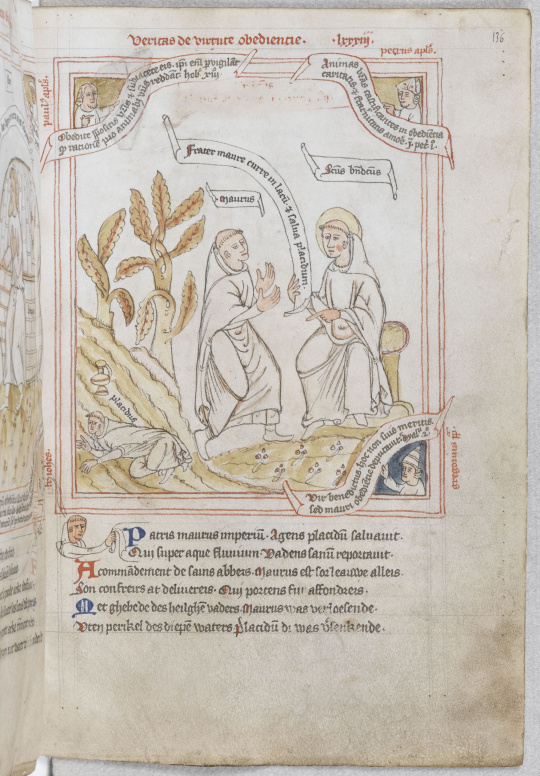 136
Veritas de virtute obediencie · lxxxiij ·
petrus apl̄s.
paul⁹ apl̄s
Obedite p̄positis vr̄is ⁊ subiacete eis. ip̄i eni᷑ p̄vigilāt
q̄ rationē pro animabus vr̄is reddāt. heb. xiij.
Animas vr̄as castificantes in obediētia
caritatis ⁊ fraternitatis amore. j. pet. j.
Frater maure curre in lacū ⁊ salva placidum.
Sc̄us bn̄dc̄us
maurus
placidus
Vir benedictus hoc non suis meritis.
sed mauri obediētie deputavit.
Patris maurus imperiū. Agens placidū salvavit.
Qui super aque fluvium Vadens sanū reportavit.
A commādement de sains abbeis. Maurus est sor leauwe alleis.
Son confreirs at delivereirs. Qui portens fut affondreis.
Met ghebede des heilghē vaders. Maurus was verloesende.
Vten perikel des diepē waters. Placidū di was v̄lenkende.